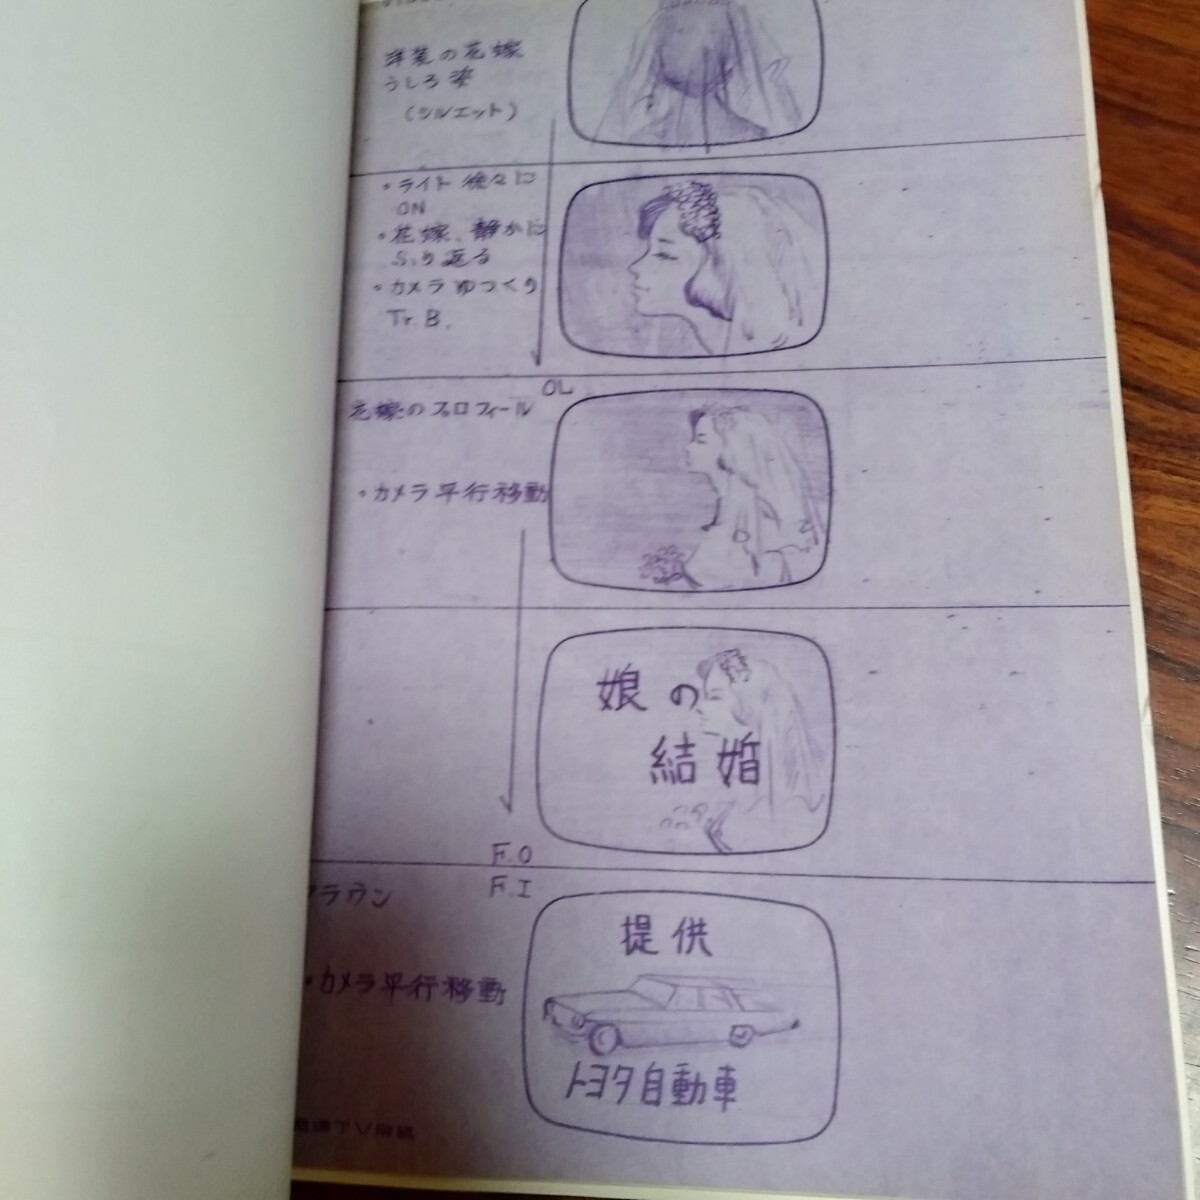 洋装の花嫁
うしろ姿
(シルエット)
・ライト 徐々に
ON
・花嫁、静かに
ふり返る
・カメラ ゆっくり
Tr. B.
OL
花嫁のプロフィール
・カメラ平行移動
娘の
結婚
F.O
F.I
クラウン
・カメラ平行移動
提供
トヨタ自動車